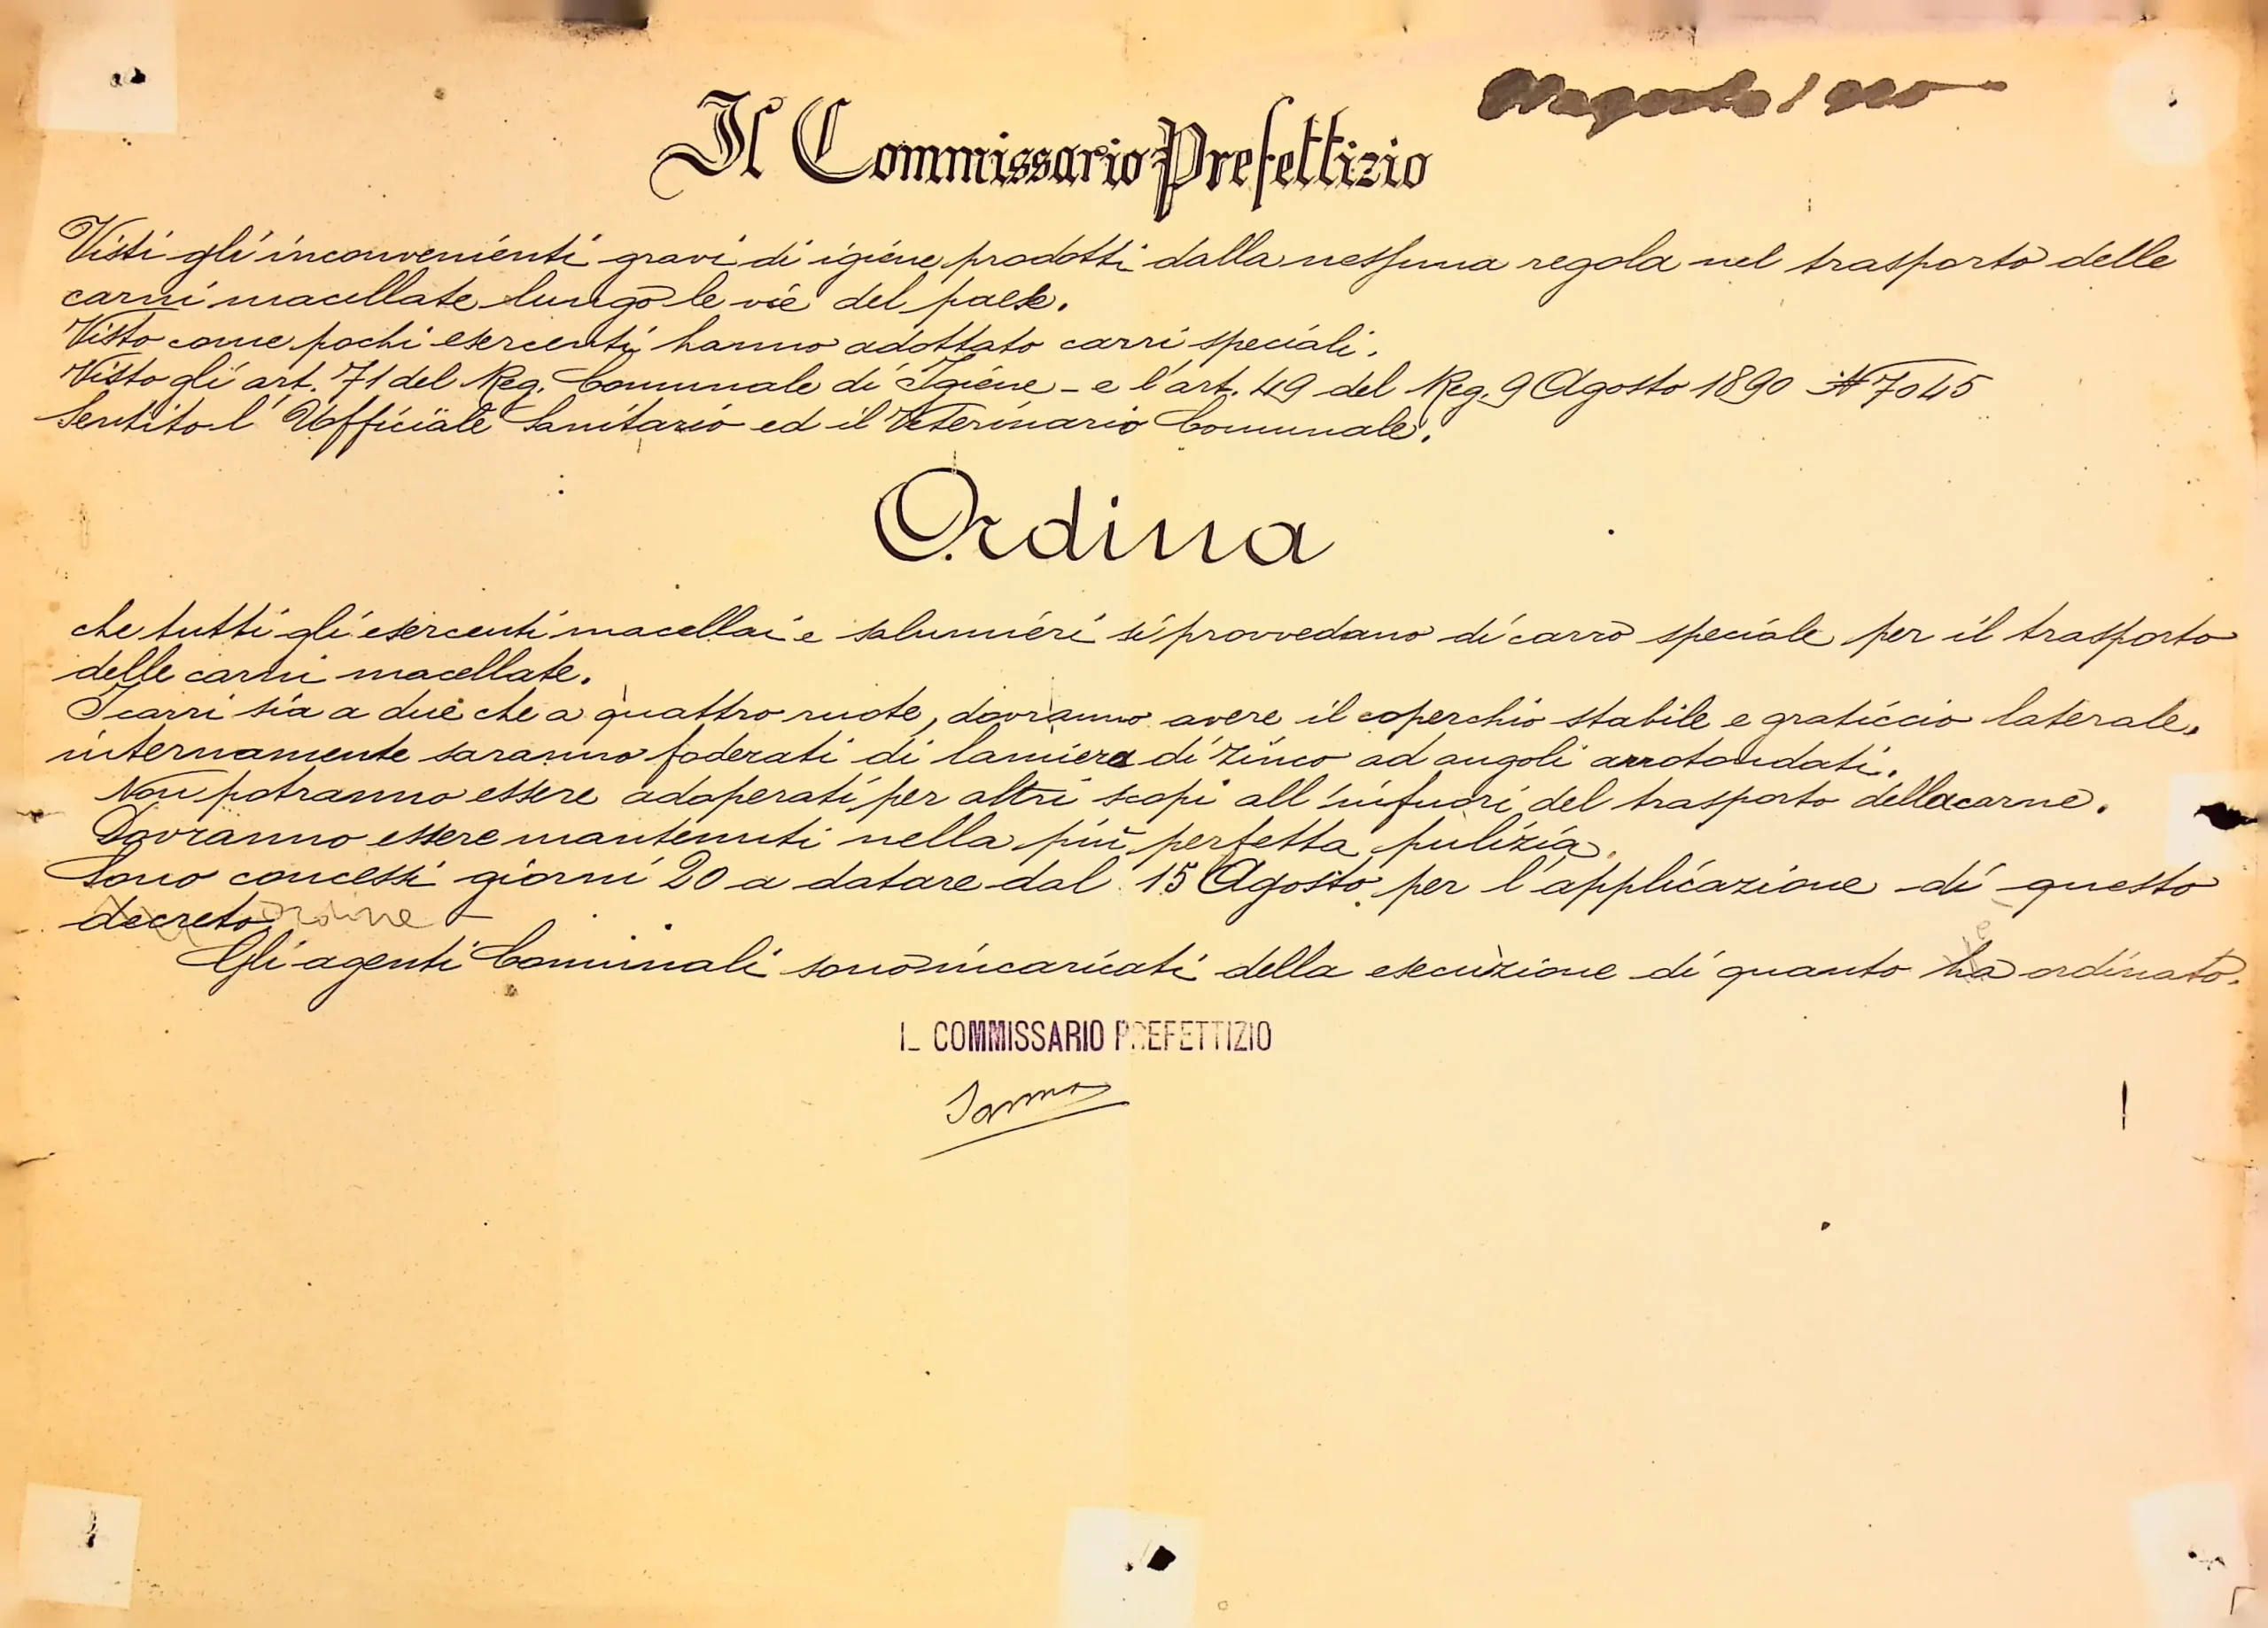 Il Commissario Prefettizio
Visti gli inconvenienti gravi di igiene prodotti dalla nessuna regola nel trasporto delle
carni macellate lungo le vie del paese.
Visto come pochi esercenti hanno adottato carri speciali.
Visto gli art. 71 del Reg. Comunale di Igiene - e l'art. 49 del Reg. 9 Agosto 1890 N 7045
Sentito l'Ufficiale Sanitario ed il Veterinario Comunale.
Ordina
che tutti gli esercenti macellai e salumieri si provvedano di carro speciale per il trasporto
delle carni macellate.
I carri sia a due che a quattro ruote, dovranno avere il coperchio stabile e graticcio laterale.
internamente saranno foderati di lamiera di zinco ad angoli arrotondati.
Non potranno essere adoperati per altri scopi all'infuori del trasporto della carne.
Dovranno essere mantenuti nella più perfetta pulizia.
Sono concessi giorni 20 a datare dal 15 Agosto per l'applicazione di questo
decreto ordine
Gli agenti Comunali sono incaricati della esecuzione di quanto ha ordinato.
L COMMISSARIO PREFETTIZIO